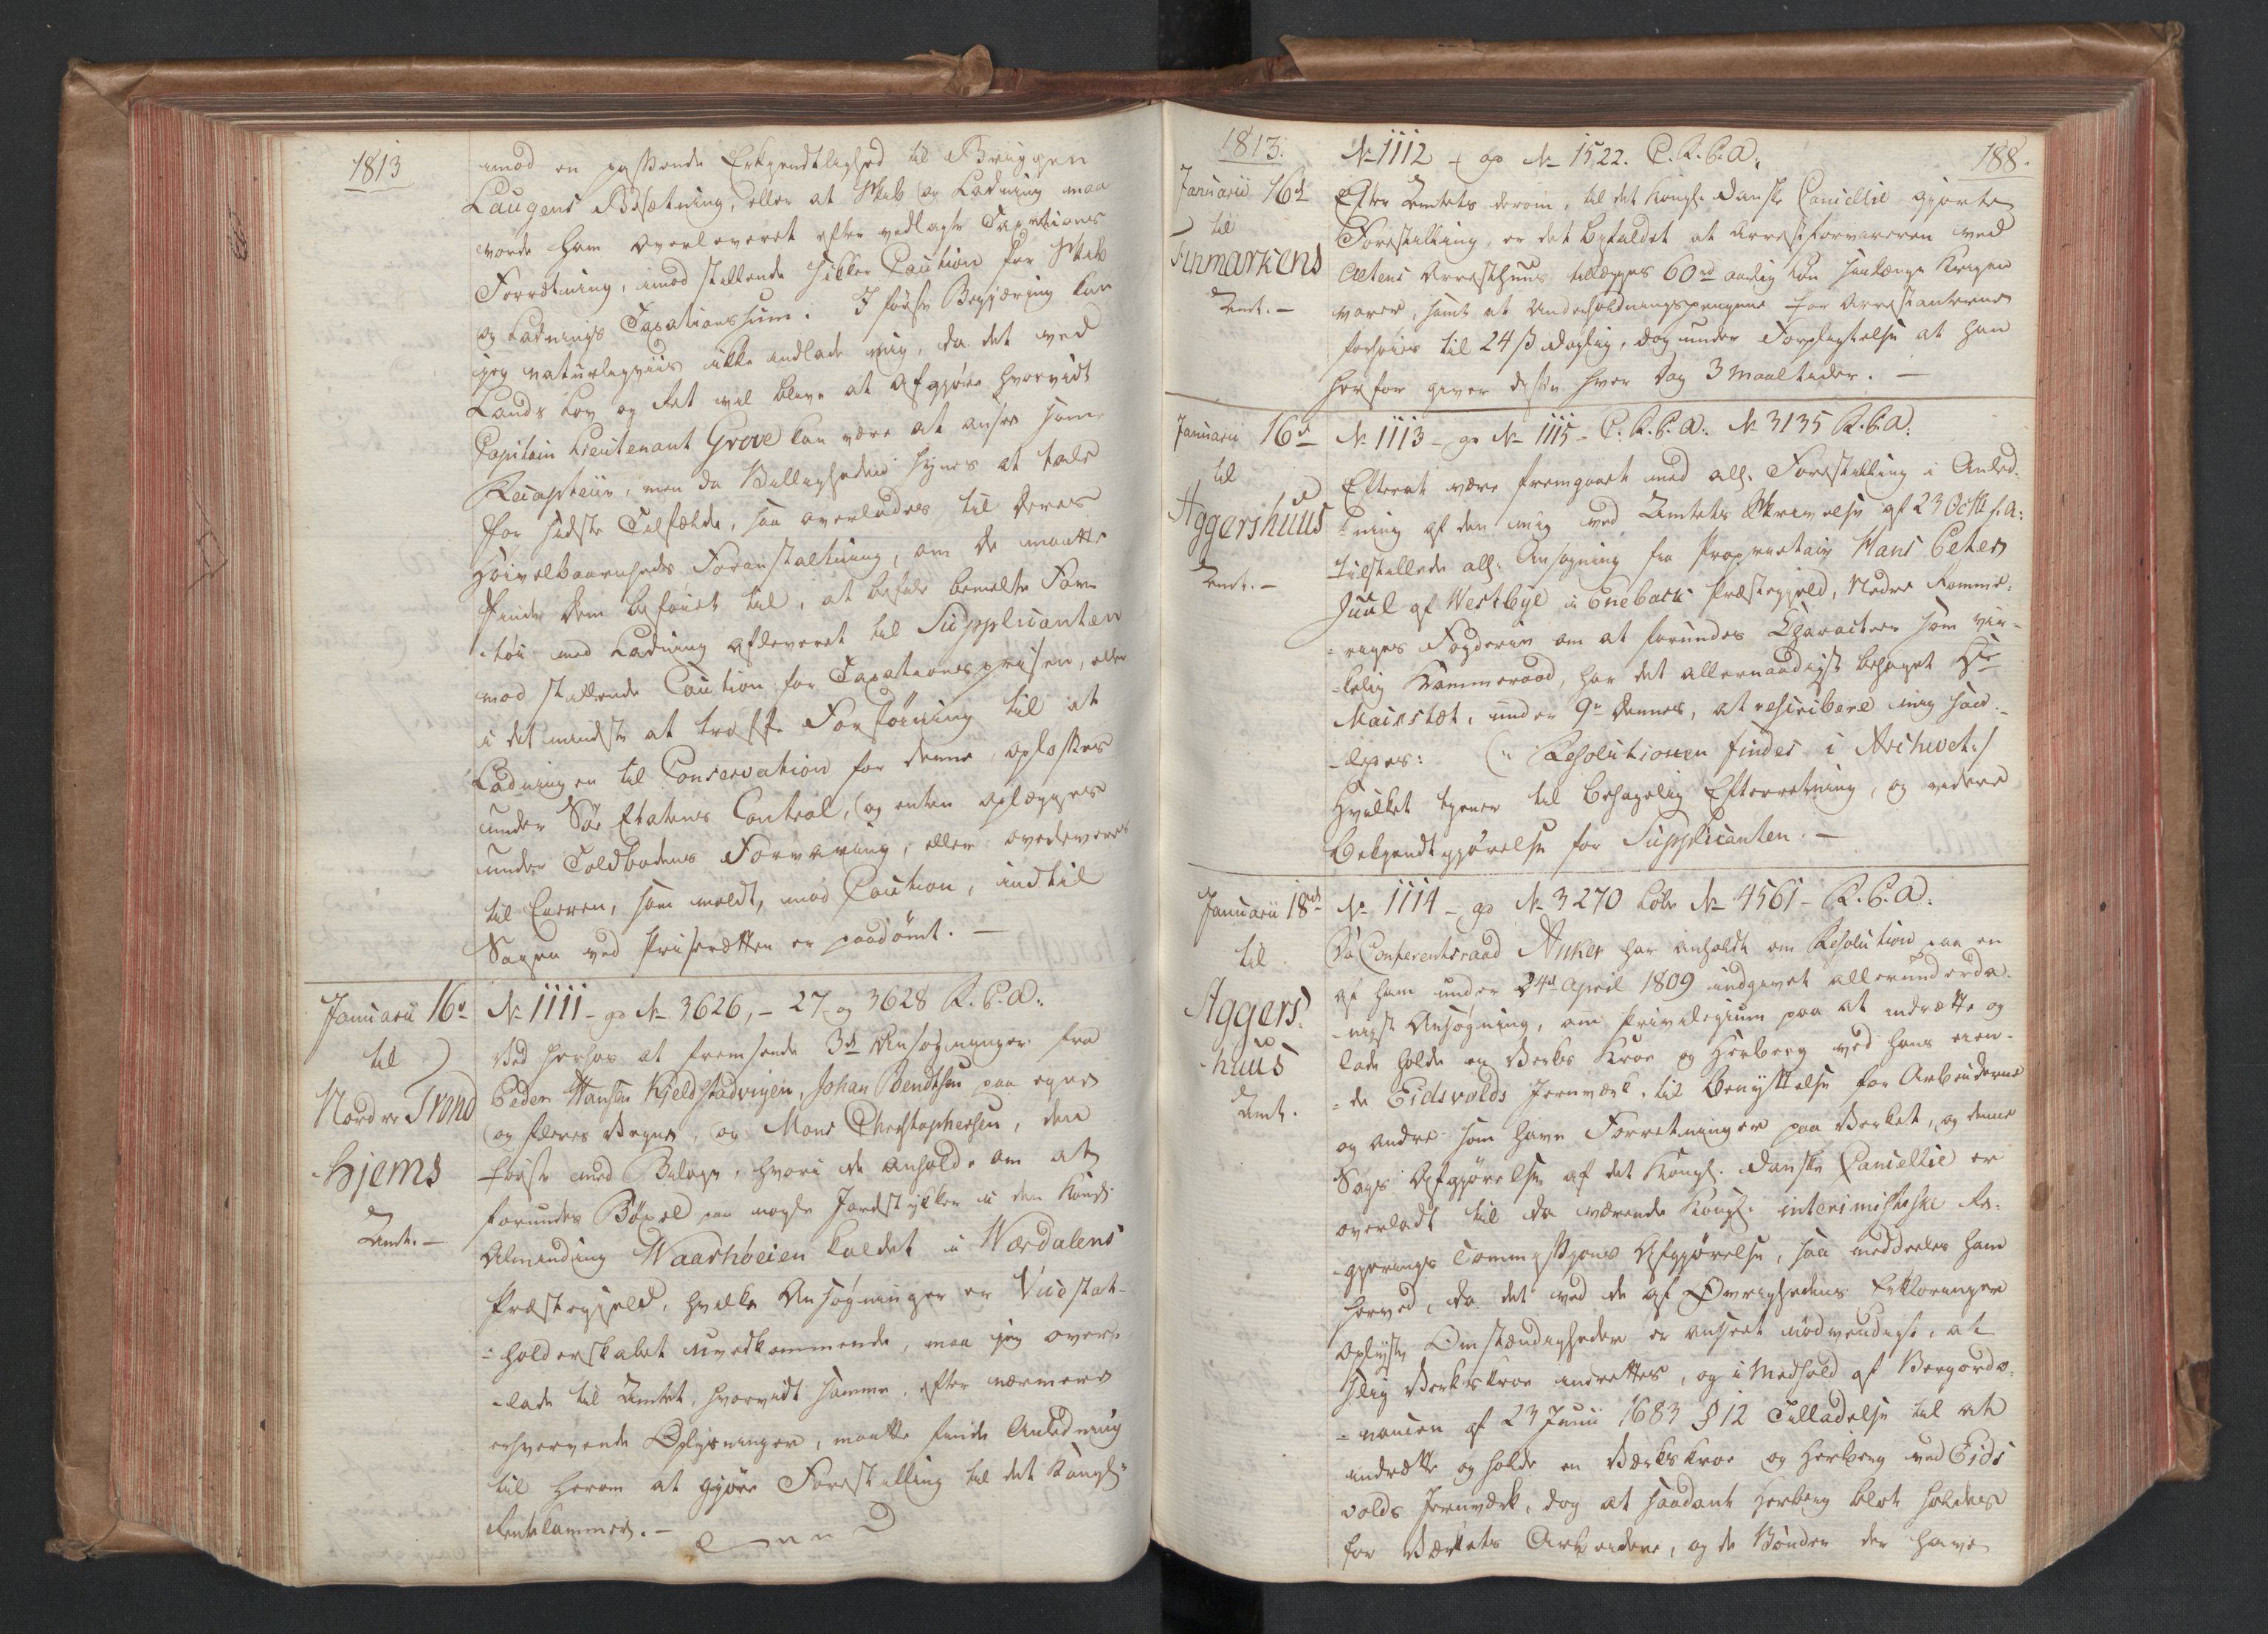 1813
imod en passende Erkjendtlighed til Briggen
Laugens Besætning, eller at Skib og Ladning maa
vorde ham overleveret efter vedlagte Taxations
Forretning, imod stillende sikker Caution for Skib
og Ladnings Taxationssum. I første Begjæring kan
jeg naturligviis ikke indlade mig, da det ved
Lands Lov og Ret vil blive at afgjøre hvorvidt
Capitain Lieutenant Grove kan være at ansee som
Recapteur, men da Billigheden synes at tale
for sidste Tilfælde, saa overlades til Deres
Høivelbaarenheds Foranstaltning, om De maatte
finde Dem beføiet til, at befale bemeldte Far-
tøi med Ladning afleveret til Supplicanten
mod stillende Caution for Taxationsprisen, eller
i det mindste at træffe Forføining til at
Ladningen til Conservation for denne, oplosses
under Søe Etatens Control, og enten oplægges
under Toldbodens Forvaring, eller overleveres
til Eieren, som meldt, mod Caution, indtil
Sagen ved Priseretten er paadømt. —
Januarii 16d
til
Nordre Trond
hjems
Amt. —
No 1111 - ge No 3626, - 27 og 3628 R. C. A:
Ved herhos at fremsende 3de Ansøgninger fra
Peder Hansen Kjeldstadvigen, Johan Bendtsen paa egne
og fleres Vegne, og Mons Christophersen, den
første med Bilage, hvori de anholde om at
forundes Böxel paa nogle Jordstykker i den Kongl:
Alminding Waarhøeien kaldet i Wærdalens
Præstegjeld, hvilke Ansøgninger er Viicestat-
holderskabet uvedkommende, maa jeg over-
lade til Amtet, hvorvidt samme, efter nærmere
erhvervende Oplysninger, maatte finde Anledning
til herom at gjøre Forestilling til det Kongl:
Rentekammer. —
1813.
188.
Januarii 16d
til
Finmarkens
Amt. —
No 1112 - ge No 1522. C. R. C. A.
Efter Amtets derom, til det Kongl. Danske Cancellie gjorte
Forestilling, er det bifaldet at Arrestforvareren ved
Altens Arresthuus tillægges 60 rd aarlig Løn saalænge Krigen
varer, samt at Underholdningspengene for Arrestanterne
forhøies til 24 ß daglig, dog under Forpligtelse at han
herfor giver dem hver Dag 3 Maaltider. —
Januarii 16d
til
Aggershuus
Amt. —
No 1113 - ge No 1115 - C. R. C. A: No 3135 R. C. A:
Efterat være fremgaaet med all. Forestilling i Anled-
ning af den mig ved Amtets Skrivelse af 23 Octb f. A:
tilstillede all: Ansøgning fra Proprietair Hans Peter
Juul af Westbye i Eneback Præstegjeld, Nedre Romme-
riges Fogderie om at forundes Character som vir-
kelig Kammerraad, har det allernaadigst behaget Hs
Maiestæt, under 9de dennes, at rescribere mig saa-
ledes: (: Resolutionen findes i Archivet :)
Hvilket tjener til behagelig Efterretning, og videre
Bekjendtgjørelse for Supplicanten. —
Januarii 18d
til
Aggers
huus
Amt.
No 1114 - ge No 3270 Løbe No 4561 - R. C. A.
Da Conferentsraad Anker har anholdt om Resolution paa en
af ham under 24d April 1809 indgivet allerunderda-
nigst Ansøgning, om Privilegium paa at indrette og
lade holde en Verks Kroe og Herberg ved hans eien-
de Eidsvolds Jernværk, til Benyttelse for Arbeiderne
og andre som have Forretninger paa Verket, og denne
Sags Afgjørelse af det Kongl. Danske Cancellie er
overladt til da værende Kongl. interimistiske Re-
gjerings Commissions Afgjørelse, saa meddeles ham
herved, da det ved de af Øvrighedens Erklæringer
oplyste Omstændigheder er anseet nødvendigt, at
slig Verkskroe indrettes, og i Medhold af Bergordo-
nancen af 23 Junii 1683 § 12 Tilladelse til at
indrette og holde en Værkskroe og Herberg ved Eids
volds Jernværk, dog at saadant Herberg blot holdes
for Værkets Arbeidere, og de Bønder der have